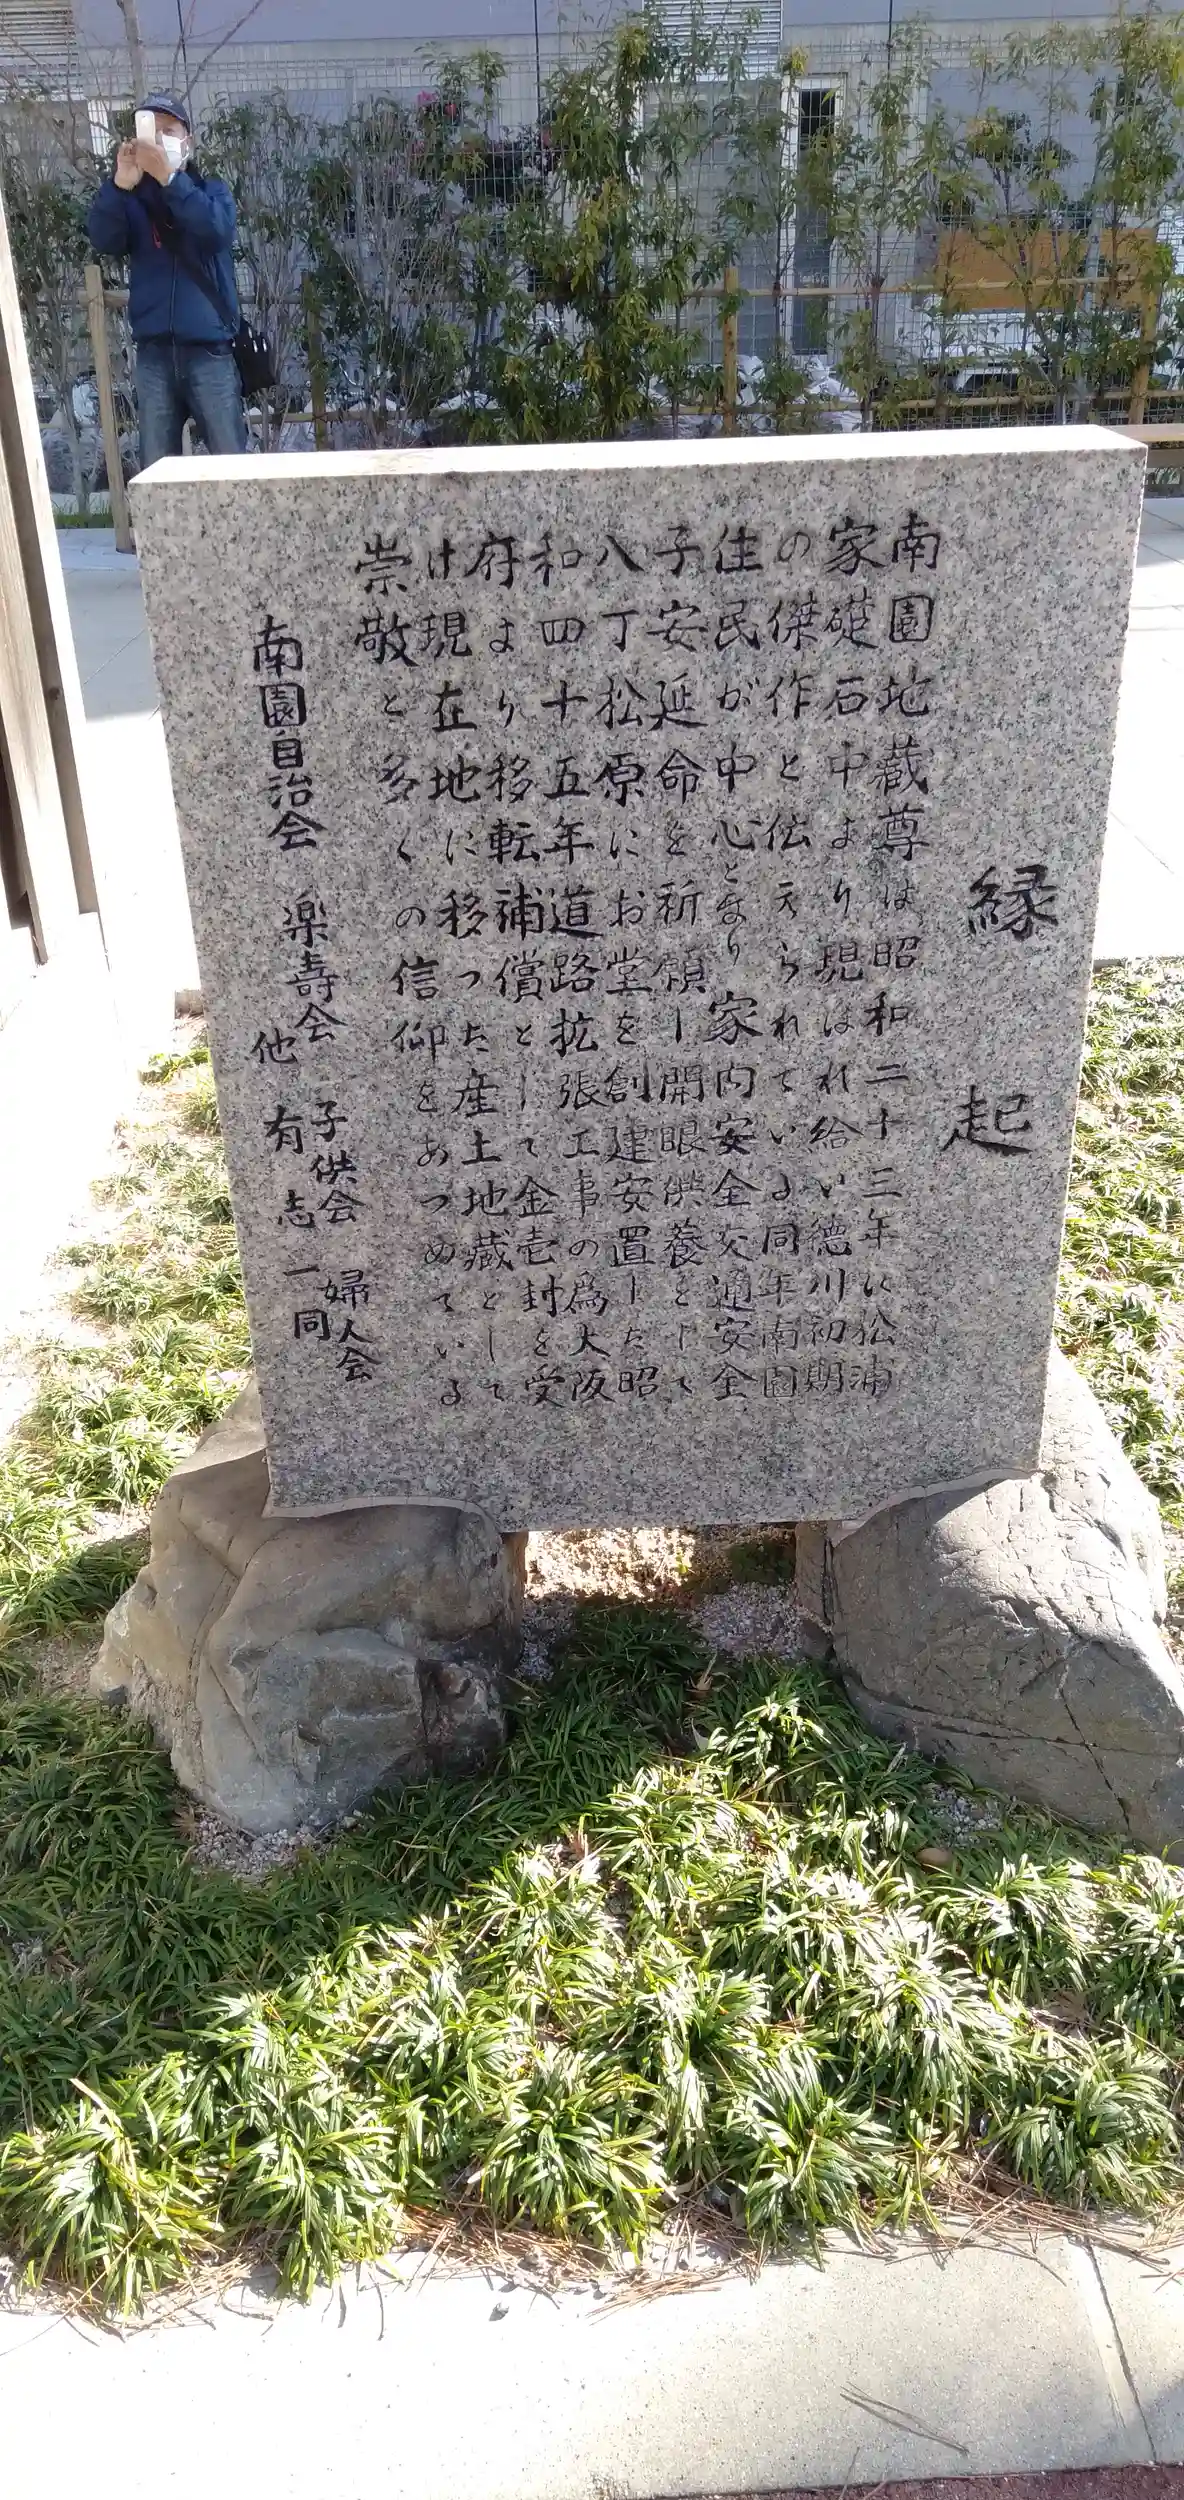 縁起
南園地蔵尊は昭和二十三年に松浦
家礎石中より現はれ給い徳川初期
の傑作と伝えられている同年南園
住民が中心となり家内安全交通安全
子安延命を祈願し開眼供養をして
八丁松原にお堂を創建安置した昭
和四十五年道路拡張工事の為大阪
府より移転補償として金壱封を受
け現在地に移った産土地蔵として
崇敬と多くの信仰をあつめている
南園自治会 楽寿会 子供会 婦人会
他 有志一同